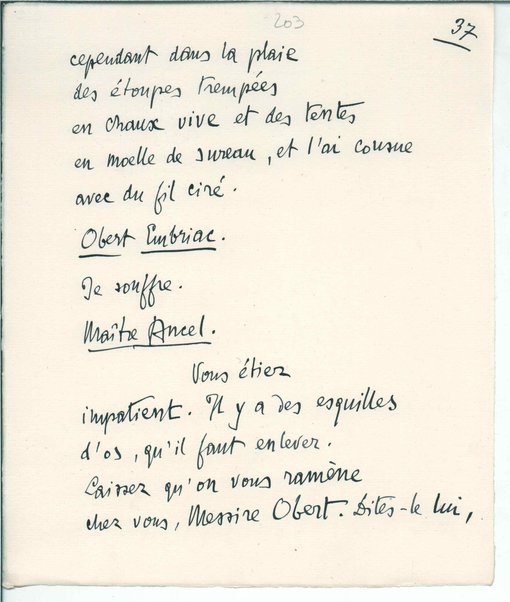 203
37
cependant dans la plaie
des étoupes trempées
en chaux vive et des tentes
en moelle de sureau, et l'ai cousue
avec du fil ciré.
Obert Embriac.
Je souffre.
Maître Ancel.
Vous étiez
impatient. Il y a des esquilles
d'os, qu'il faut enlever.
Laissez qu'on vous ramène
chez vous, Messire Obert. Dites-le lui,